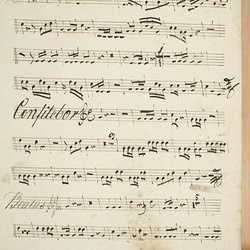 Confitebor
Beatus